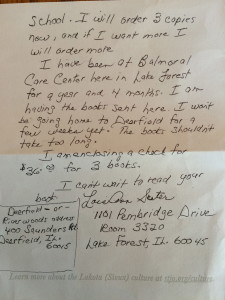 School. I will order 3 copies
now, and if I want more I
will order more.
I have been at Balmoral
Care Center here in Lake Forest
for a year and 4 months. I am
having the books sent here. I wont
be going home to Deerfield for a
few weeks yet. The books shouldn't
take too long.
I am enclosing a check for
$36.00 for 3 books.
I can't wait to read your
book
1101 Pembridge Drive
Room 3320
Lake Forest, Il. 60045
Deerfield - or -
Riverwoods
400 Saunders Rd.
Deerfield, Il.
60015
Learn more about the Lakota (Sioux) culture at stjo.org/culture.